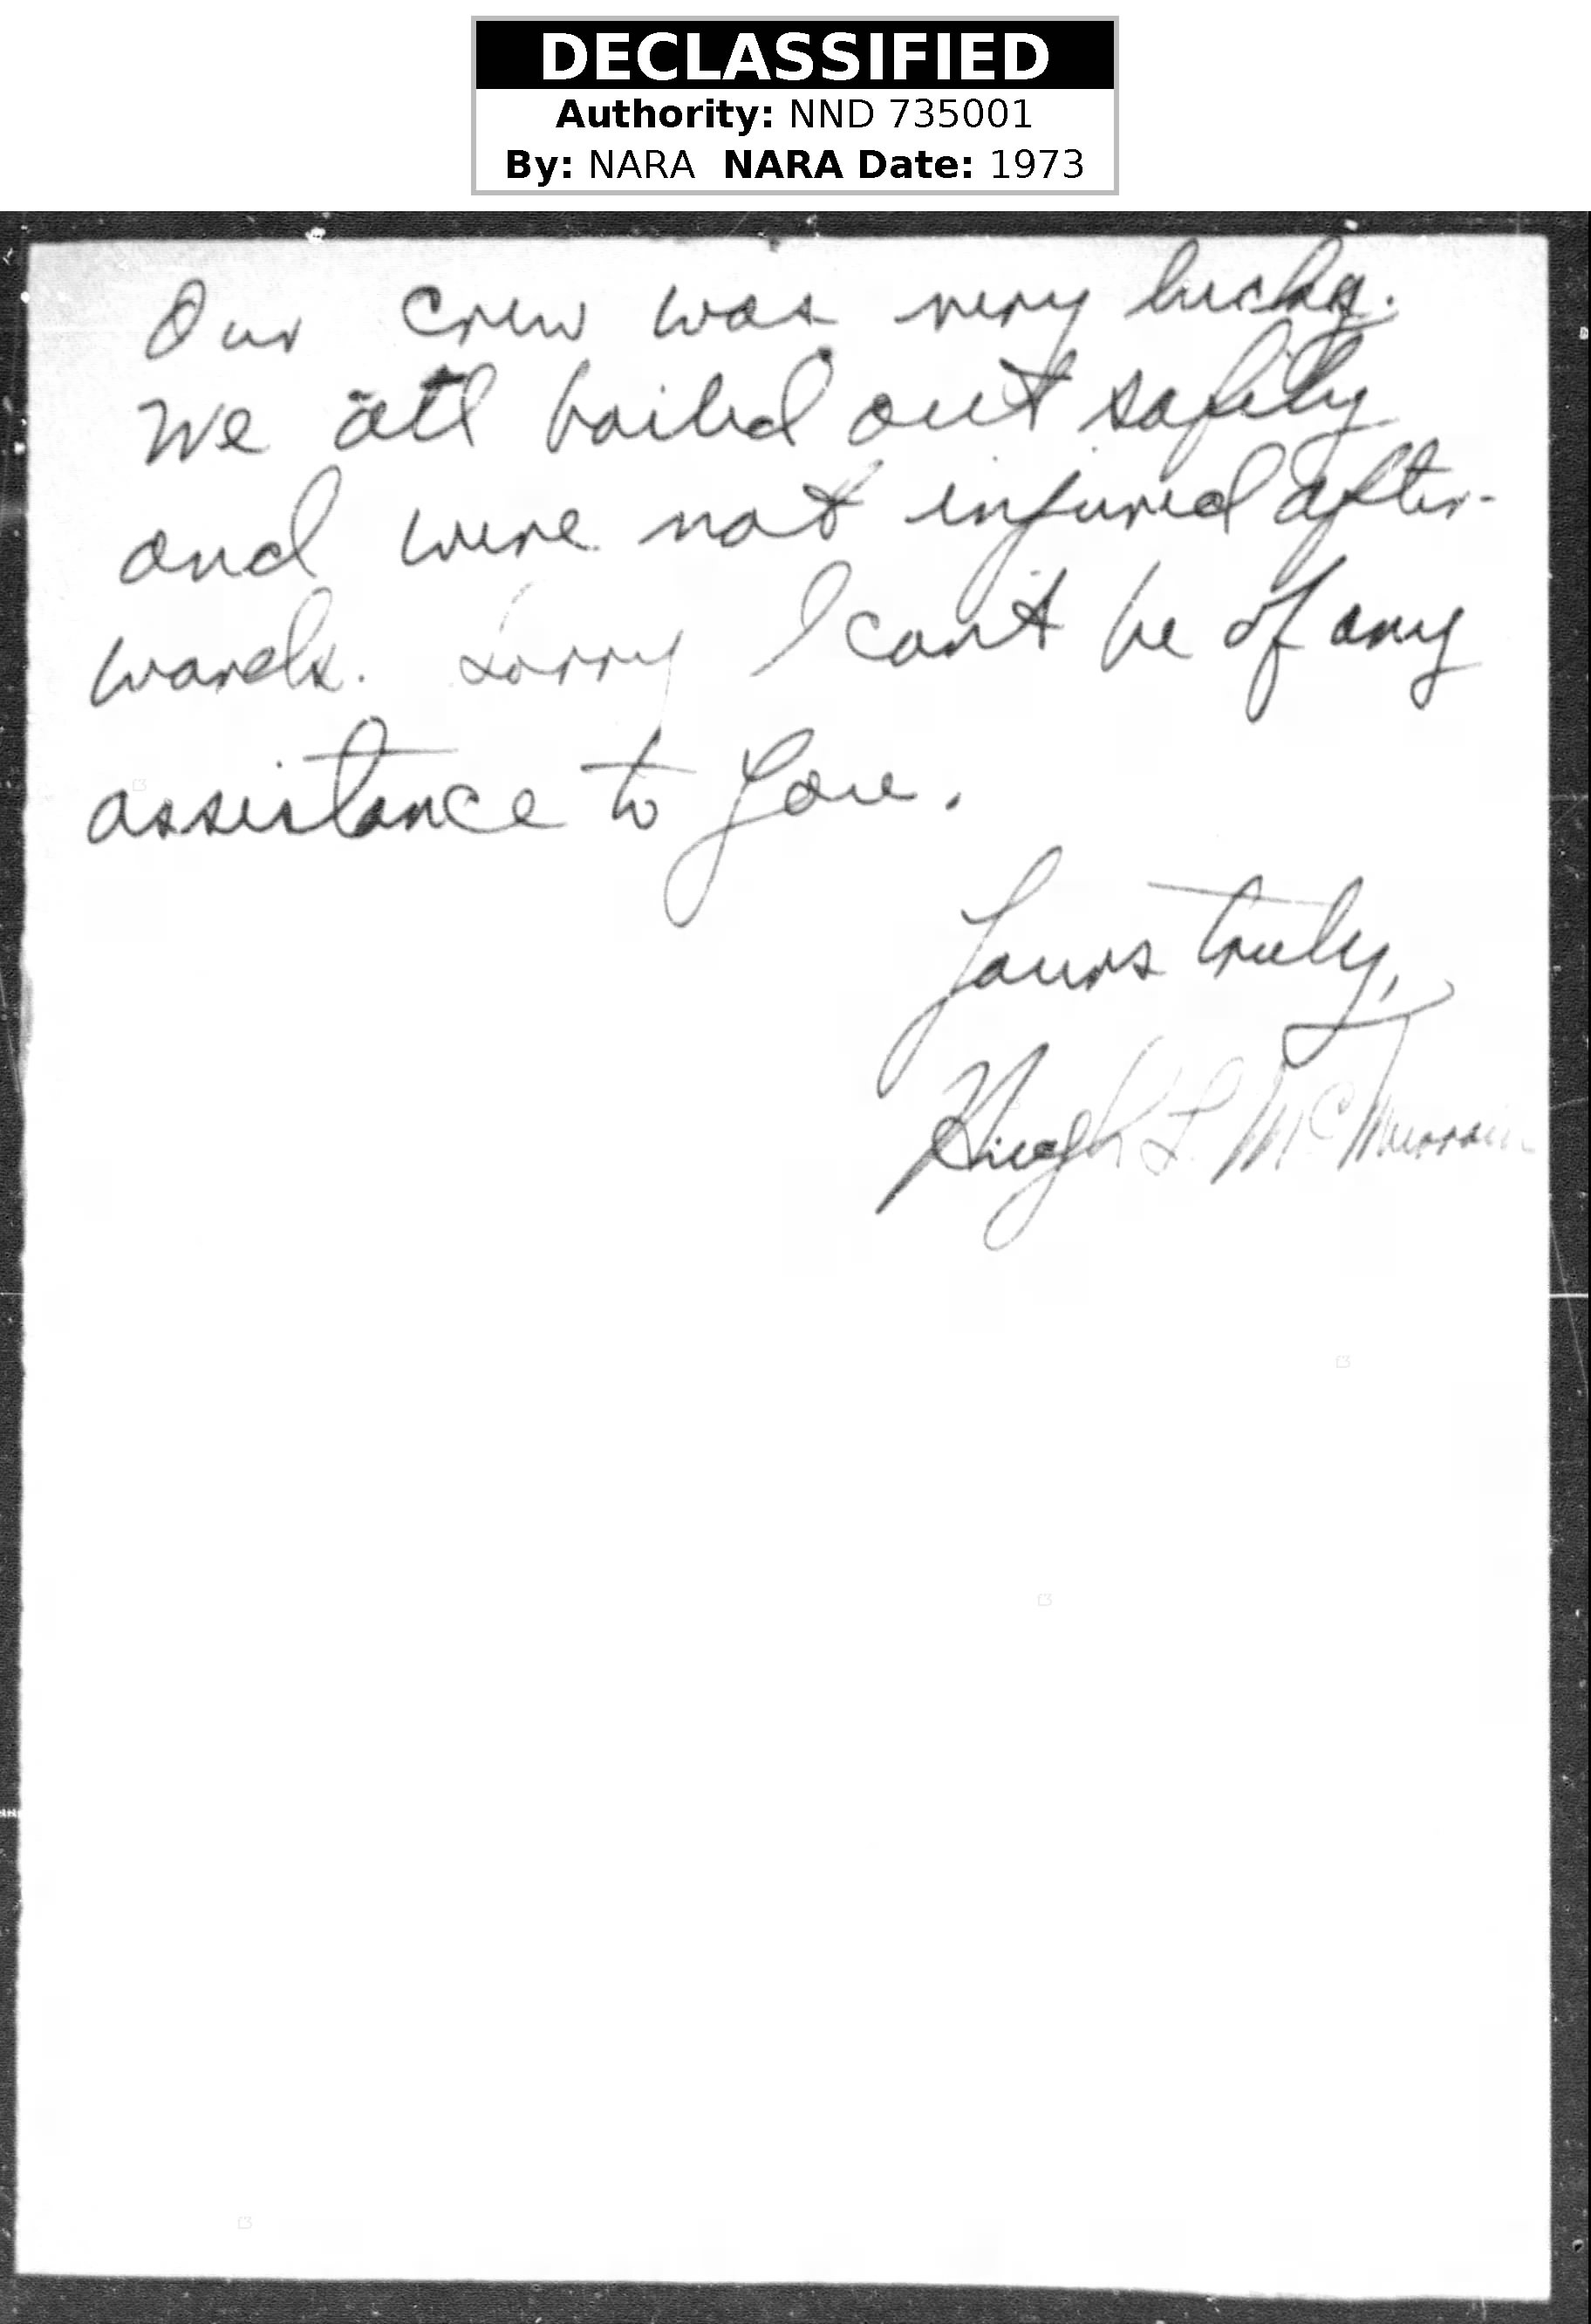 DECLASSIFIED
Authority: NND 735001
By: NARA NARA Date: 1973
Our crew was very lucky.
We all bailed out safely
and were not injured after-
wards. Sorry I can't be of any
assistance to you.
Yours truly,
Hugh L. Mc